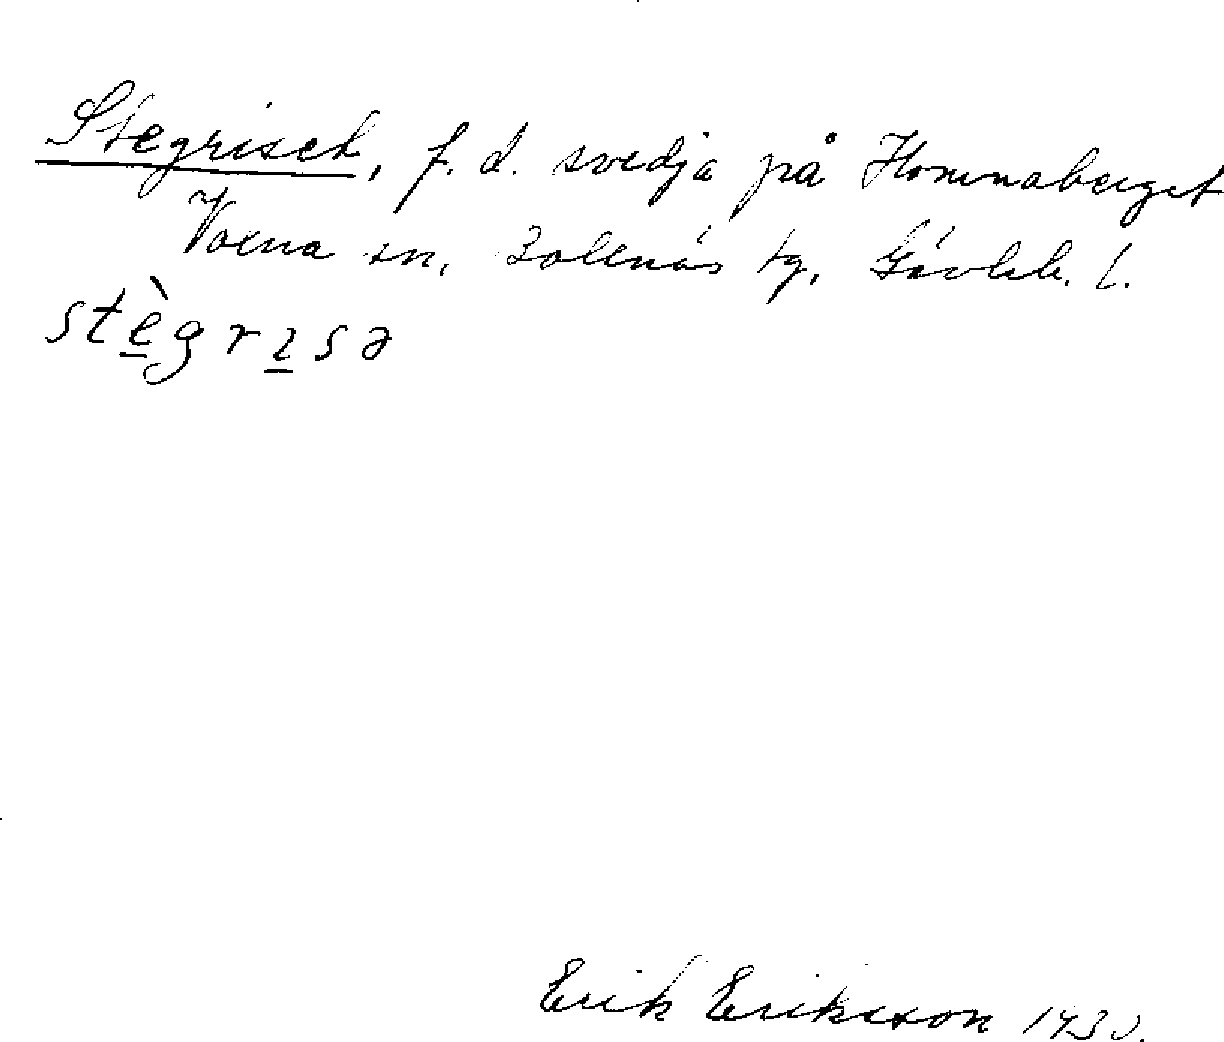 Stegriset, f. d. svedja på Homnaberget
Voxna sn, Bollnäs tg, Gävleb. l.
stègrɩsə
Erik Eriksson 1930.